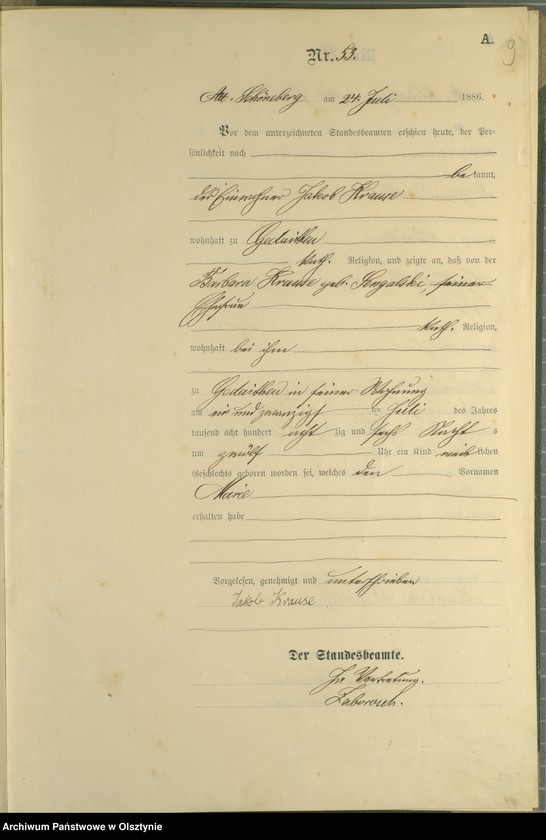 A.
9
Nr. 53.
Alt-Schöneberg am 24. Juli 1886.
Vor dem unterzeichneten Standesbeamten erschien heute, der Per-
sönlichkeit nach
bekannt,
der Einwohner Jakob Krause
wohnhaft zu Gedaithen
kath. Religion, und zeigte an, daß von der
Barbara Krause geb. Sengalski, seiner
Ehefrau
kath. Religion,
wohnhaft bei ihm
zu Gedaithen in seiner Wohnung
am ein und zwanzigsten Juli des Jahres
tausend acht hundert achtzig und sechs Nachts
um zwölf Uhr ein Kind weiblichen
Geschlechts geboren worden sei, welches den Vornamen
Marie
erhalten habe
Vorgelesen, genehmigt und unterschrieben
Jakob Krause
Der Standesbeamte.
In Vertretung.
Zaborosch.
Archiwum Państwowe w Olsztynie